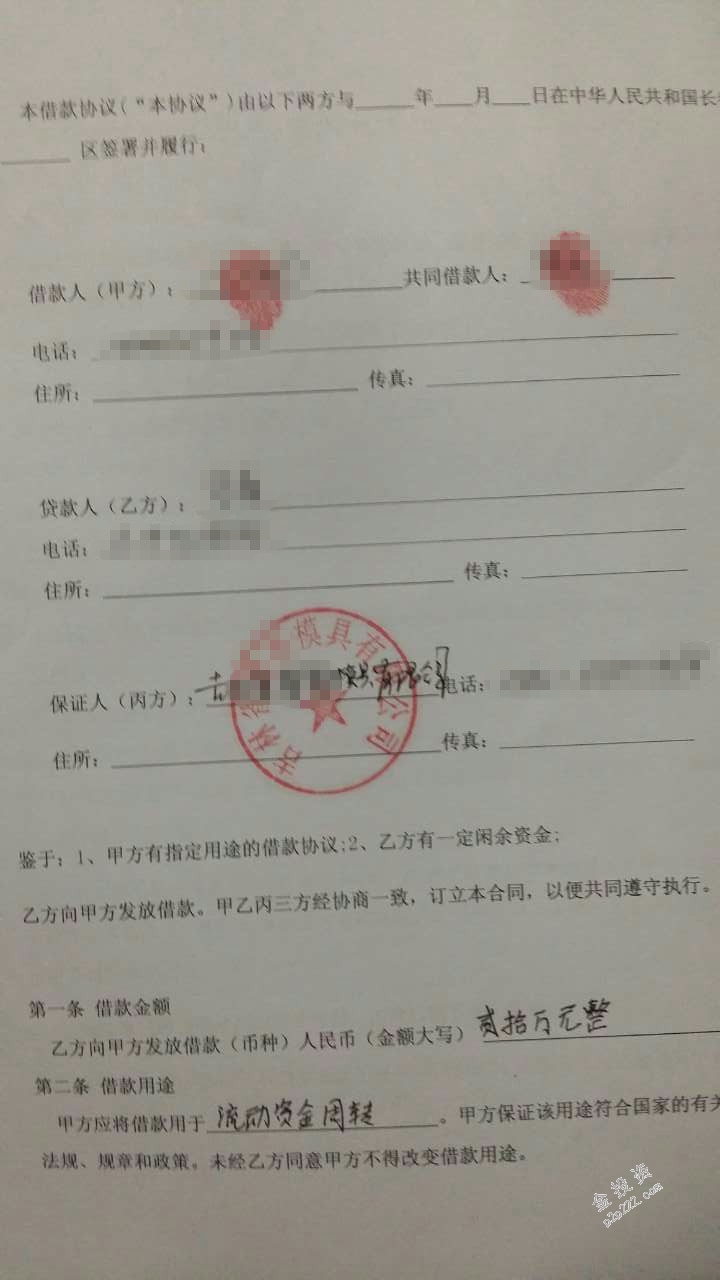 本借款协议(“本协议”)由以下两方与______年____月____日在中华人民共和国长
______区签署并履行:
借款人(甲方): 共同借款人:
电话:
住所: 传真:
贷款人(乙方):
电话:
住所: 传真:
吉林省 模具有 公司
保证人(丙方): 吉 模具有限公司 电话:
住所: 传真:
鉴于:1、甲方有指定用途的借款协议;2、乙方有一定闲余资金;
乙方向甲方发放借款。甲乙丙三方经协商一致,订立本合同,以便共同遵守执行。
第一条 借款金额
乙方向甲方发放借款(币种)人民币(金额大写)贰拾万元整
第二条 借款用途
甲方应将借款用于 流动资金周转 。甲方保证该用途符合国家的有关
法规、规章和政策。未经乙方同意甲方不得改变借款用途。
金投资
p2p222.com